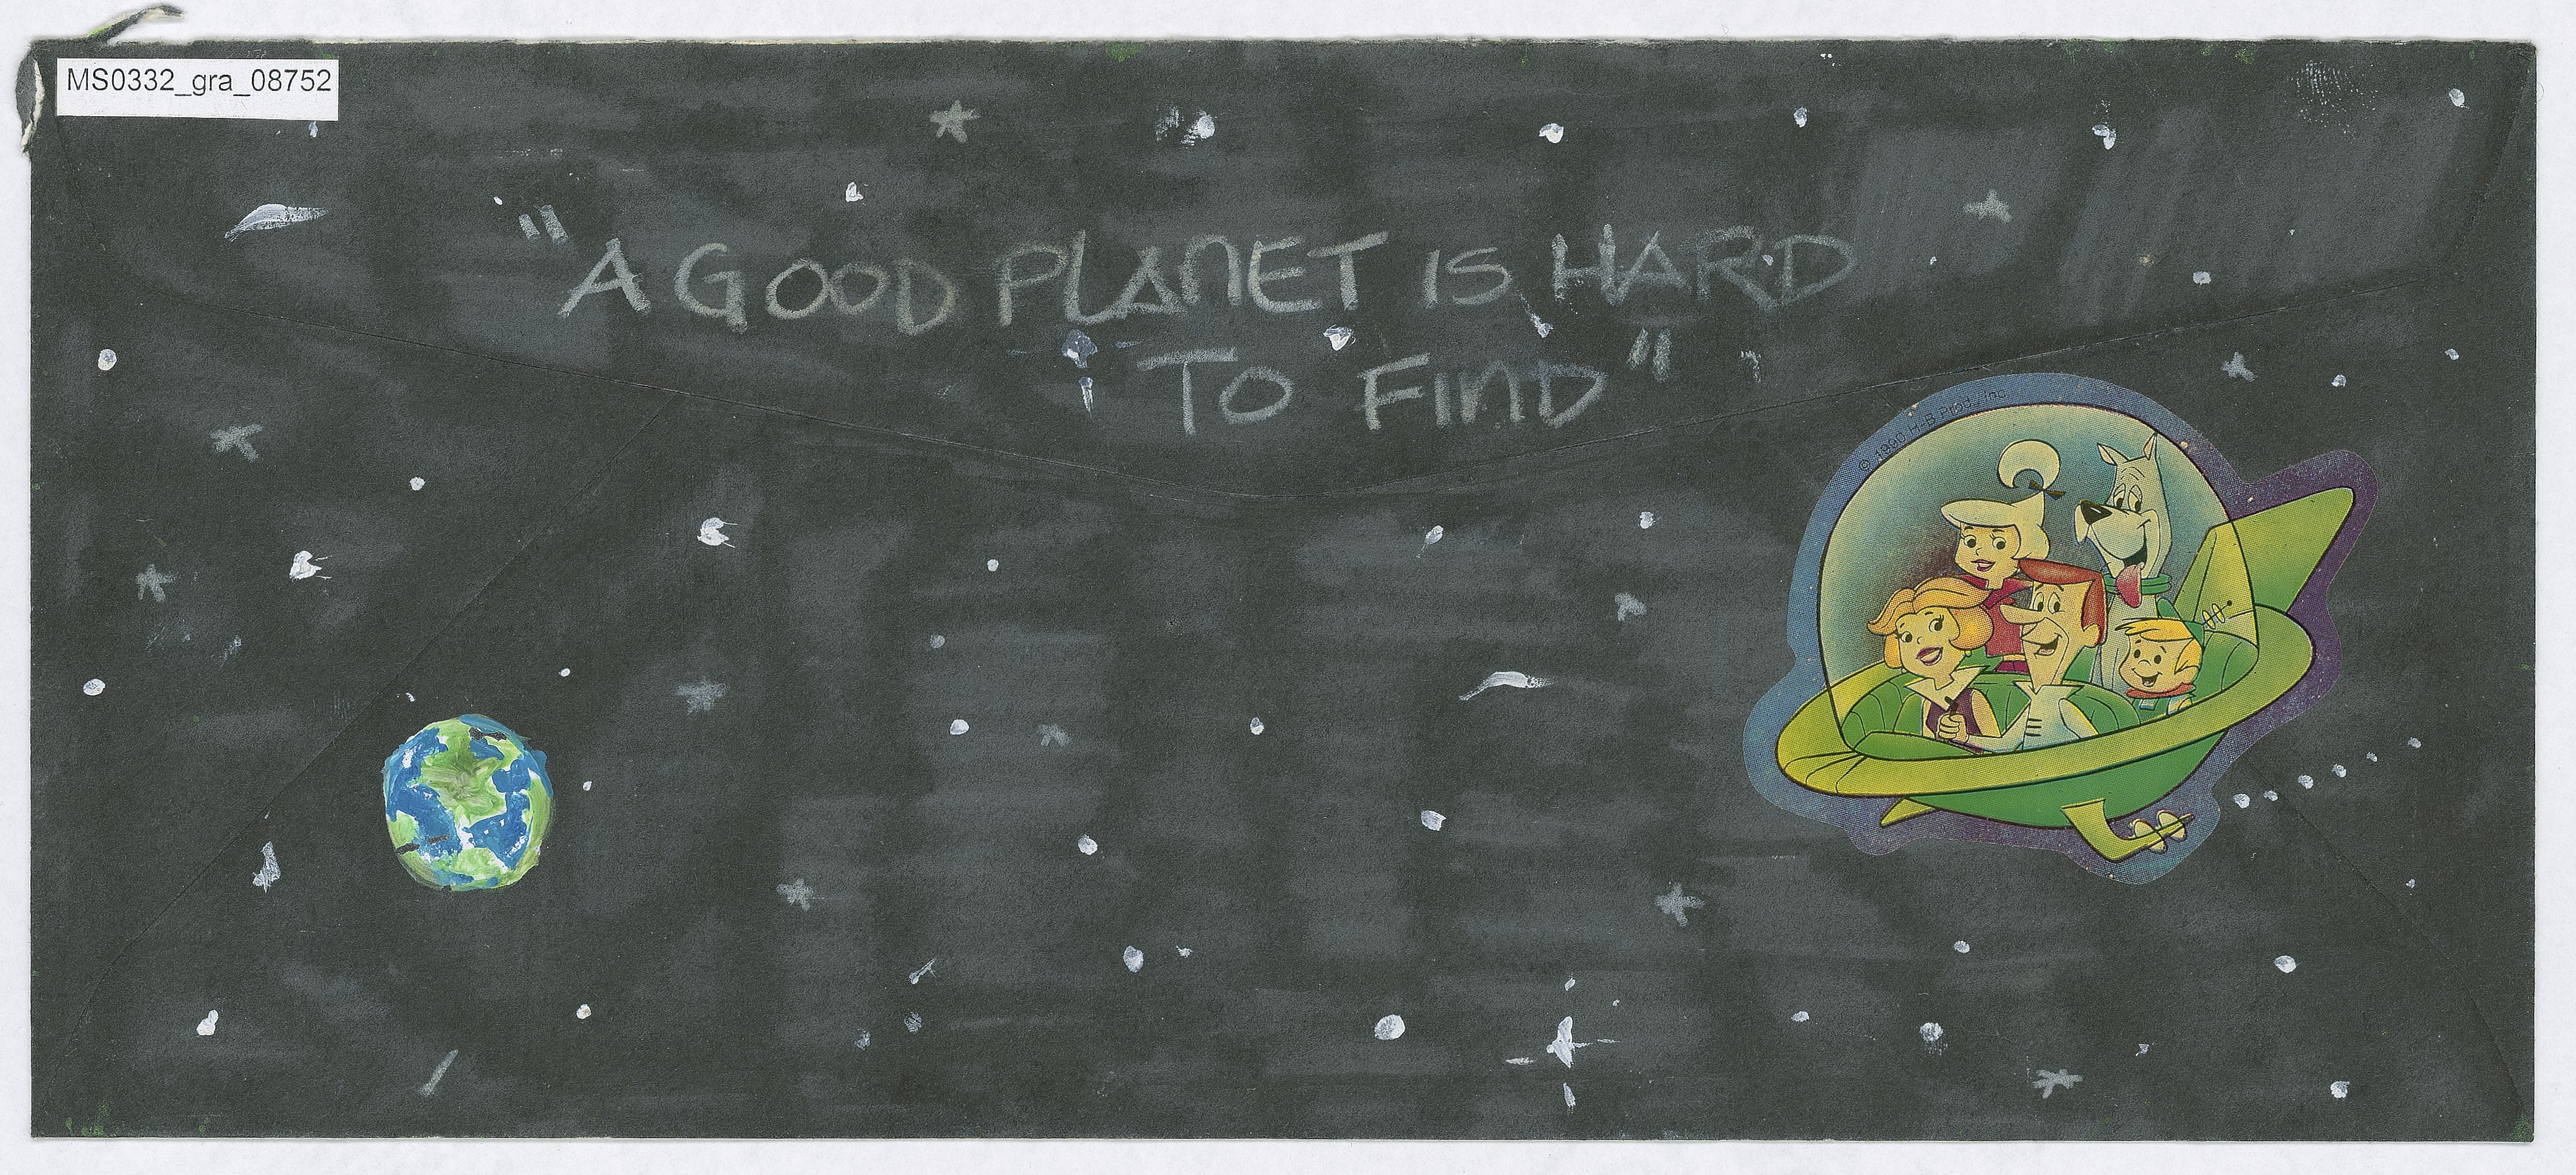 MS0332_gra_08752
"A GOOD PLANET IS HARD
TO FIND"
© 1990 H-B Prod., Inc.